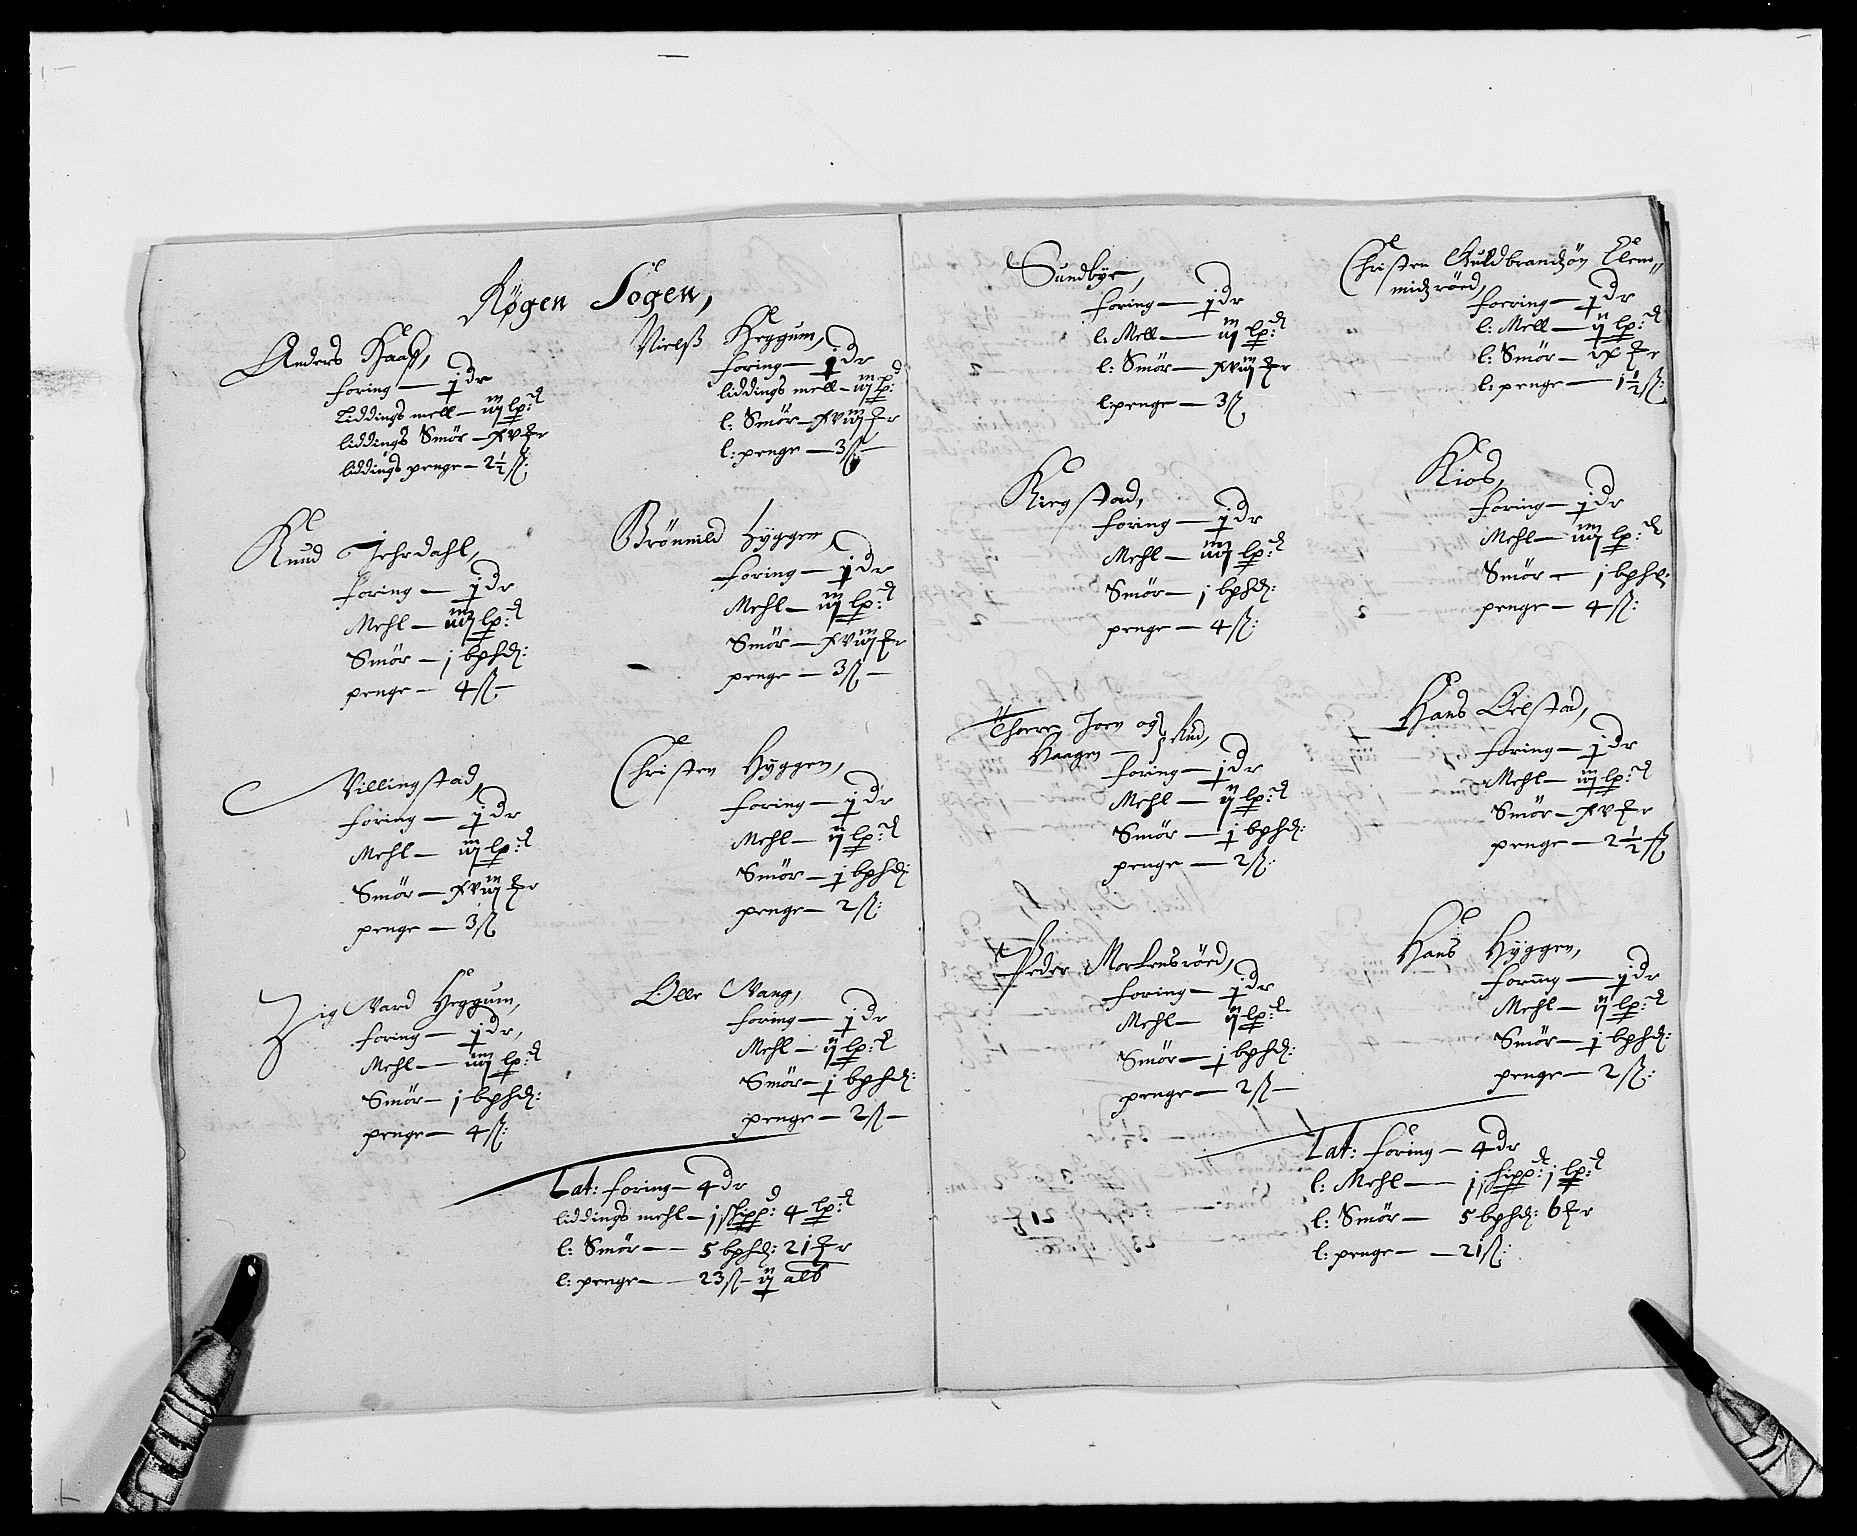 Røgen Sogen,
Anders Haaß,
foring — j dr
Liddings mell — iij lp:d
liddings Smör — xv ₻r
liddings penge — 2½ ß:
Knud Jehrdahl,
foring — j dr
Mehl — iiij lp:d
Smör — j bphd:
penge — 4 ß —
Villingstad,
foring — j dr
Mehl — iij lp:d
Smör — xviij ₻r
penge — 3 ß
Zig Vard Heggum,
foring — j dr,
Mehl — iiij lp:d
Smör — j bphd:
penge — 4 ß:
Nielß Heggum,
foring — j dr
liddings mell — iij lp:d
l: Smör — xviij ₻r
l: penge — 3 ß —
Brönnild Hyggen,
foring — j dr
Mehl — iij lp:d
Smör — xviij ₻r
penge — 3 ß —
Christen Hyggen,
foring — j dr
Mehl — ij lp:d
Smör — j bphd:
penge — 2 ß:
Olle Vang,
foring — j dr
Mehl — ij lp:d
Smör — j bphd:
penge — 2 ß —
Lat: foring — 4 dr
liddings mehl — j skipp:d 4 lp:d
l: Smör — 5 bphd: 21 ₻r
l: penge — 23 ß — ij alb
Sundbye,
foring — j dr
l: Mell — iij lp:d
l: Smör — xviij ₻r
l: penge — 3 ß
Kirgstad,
foring — j dr
Mehl — iiij lp:d
Smör — j bphd:
penge — 4 ß:
Thore, Joen og
Haagen Rud,
foring — j dr
Mehl — ij lp:d
Smör — j bphd:
penge — 2 ß:
Peder Mortensröed,
foring — j dr
Mehl — ij lp:d
Smör — j bphd:
penge — 2 ß —
Christen Guldbrandzön Clem„
midzröed,
foering — j dr
l: Mell — ij lp:d
l: Smör — ix ₻r
l: penge — 1½ ß:
Kios,
foring — j dr
Mehl — iiij lp:d
Smör — j bphd:
penge — 4 ß:
Hans Oelstad,
foring — j dr
Mehl — iij lp:d
Smör — xv ₻r
penge — 2½ ß
Hans Hyggen,
foring — j dr
Mehl — ij lp:d
Smör — j bphd:
penge — 2 ß:
Lat: foring — 4 dr
l: Mehl — j skipp:d j lp:d
l: Smör — 5 bphd: 6 ₻r
l: penge — 21 ß: